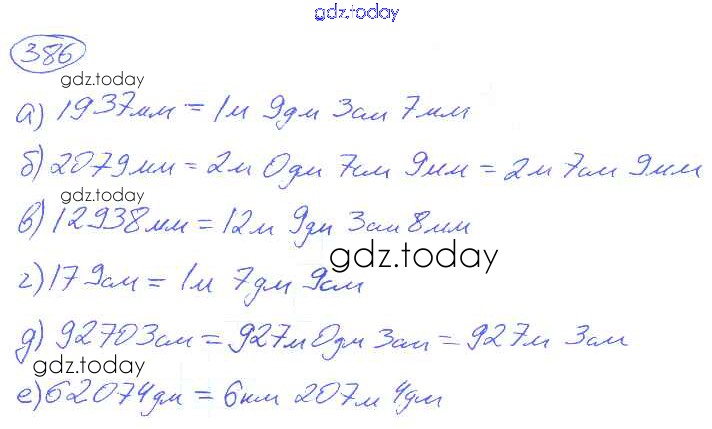 gdz.today
386
gdz.today
а) 1937мм = 1м 9дм 3см 7мм
б) 2079мм = 2м 0дм 7см 9мм = 2м 7см 9мм
gdz.today
в) 12938мм = 12м 9дм 3см 8мм
gdz.today
г) 179см = 1м 7дм 9см
д) 92703см = 927м 0дм 3см = 927м 3см
gdz.today
е) 62074дм = 6км 207м 4дм